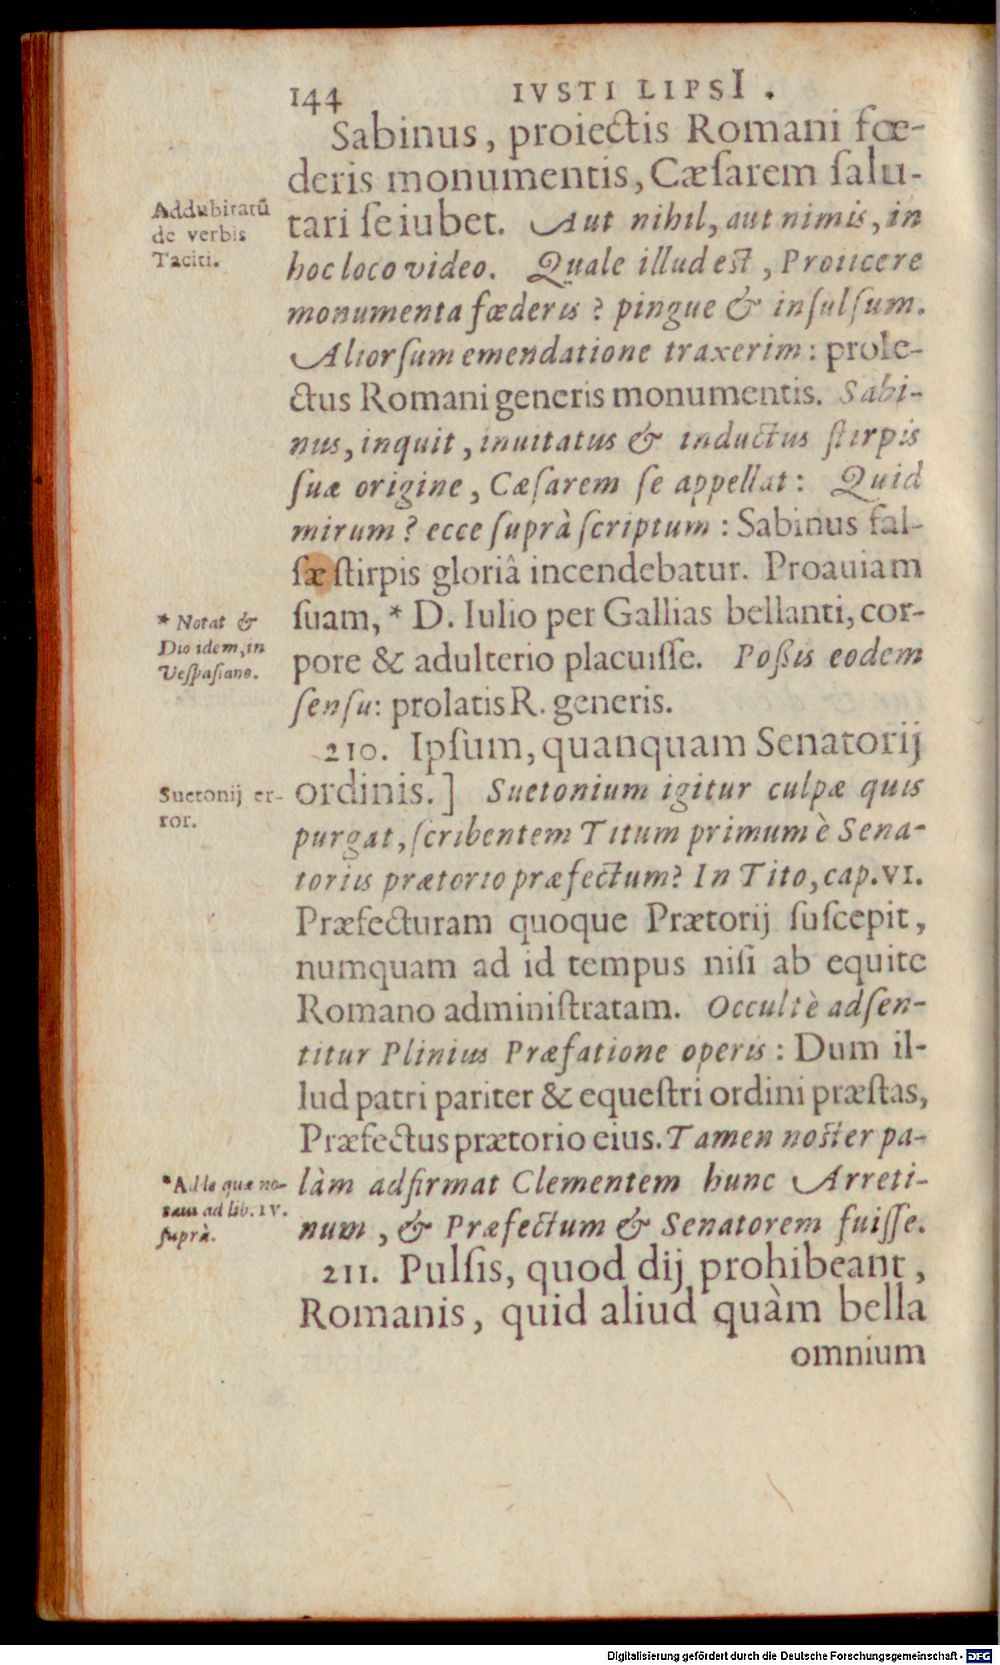 144 IVSTI LIPSI.
Sabinus, proiectis Romani fœ-
deris monumentis, Cæſarem ſalu-
tari ſe iubet. Aut nihil, aut nimis, in
hoc loco video. Quale illud eſt, Proiicere
monumenta fœderis? pingue & inſulſum.
Aliorſum emendatione traxerim: prole-
ctus Romani generis monumentis. Sabi-
nus, inquit, inuitatus & inductus ſtirpis
ſuæ origine, Cæſarem ſe appellat: Quid
mirum? ecce ſuprà ſcriptum: Sabinus fal-
ſæ ſtirpis gloriâ incendebatur. Proauiam
ſuam, * D. Iulio per Gallias bellanti, cor-
pore & adulterio placuiſſe. Poßis eodem
ſenſu: prolatis R. generis.
210. Ipſum, quanquam Senatorij
ordinis.] Suetonium igitur culpæ quis
purgat, ſcribentem Titum primum è Sena-
toriis prætorio præfectum? In Tito, cap. VI.
Præfecturam quoque Prætorij ſuſcepit,
numquam ad id tempus niſi ab equite
Romano adminiſtratam. Occultè adſen-
titur Plinius Præfatione operis: Dum il-
lud patri pariter & equeſtri ordini præſtas,
Præfectus prætorio eius. Tamen noſter pa-
làm adfirmat Clementem hunc Arreti-
num, & Præfectum & Senatorem fuiſſe.
211. Pulſis, quod dij prohibeant,
Romanis, quid aliud quàm bella
omnium
Addubitatū
de verbis
Taciti.
* Notat &
Dio idem, in
Veſpaſiano.
Suetonij er-
ror.
*Adde quæ no-
tam ad lib. IV.
ſuprà.
Digitalisierung gefördert durch die Deutsche Forschungsgemeinschaft - DFG